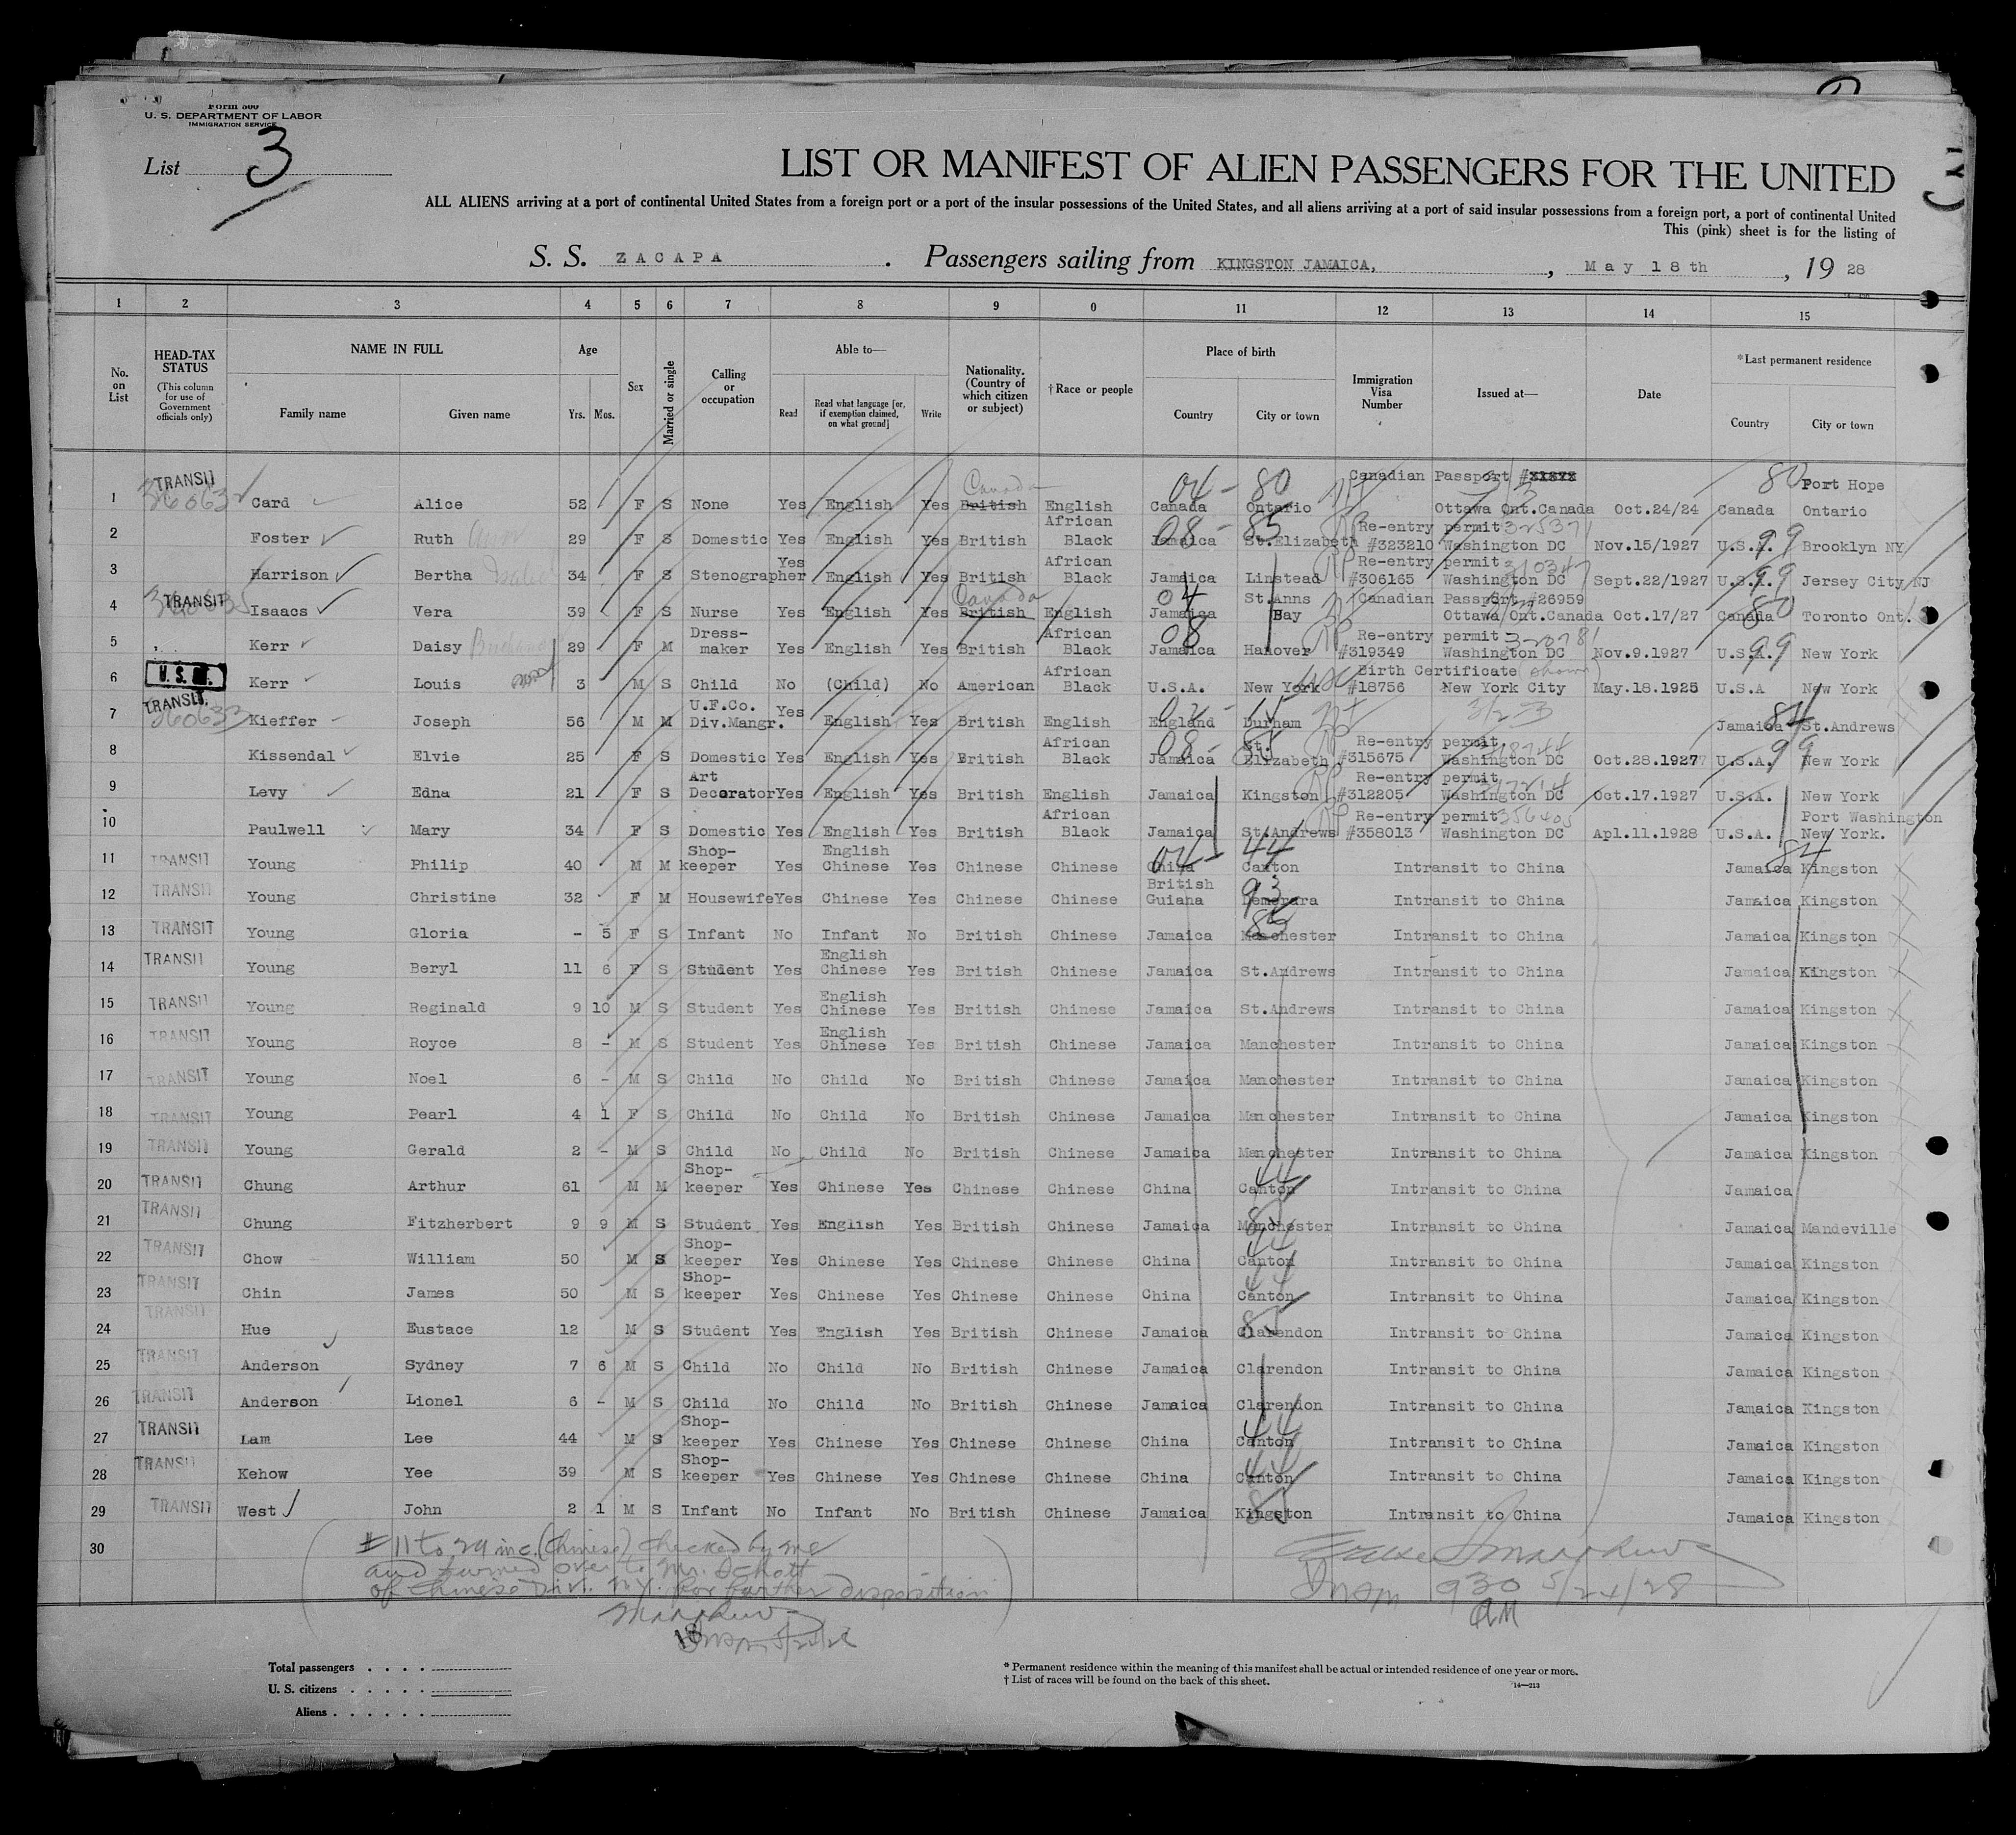 Form 500
U. S. DEPARTMENT OF LABOR
IMMIGRATION SERVICE
List 3
LIST OR MANIFEST OF ALIEN PASSENGERS FOR THE UNITED
ALL ALIENS arriving at a port of continental United States from a foreign port or a port of the insular possessions of the United States, and all aliens arriving at a port of said insular possessions from a foreign port, a port of continental United
This (pink) sheet is for the listing of
S. S. ZACAPA. Passengers sailing from KINGSTON JAMAICA, , May 18th, 1928
1 2 3 4 5 6 7 8 9 0 11 12 13 14 15
No. on List
HEAD-TAX STATUS (This column for use of Government officials only)
NAME IN FULL Family name Given name
Age Yrs. Mos.
Sex
Married or single
Calling or occupation
Able to— Read Read what language [or, if exemption claimed, on what ground] Write
Nationality. (Country of which citizen or subject)
†Race or people
Place of birth Country City or town
Immigration Visa Number
Issued at—
Date
*Last permanent residence Country City or town
1 TRANSIT 360632 Card Alice 52 F S None Yes English Yes British Canada English Canada Ontario 04 - 80 Canadian Passport # Ottawa Ont.Canada Oct.24/24 Canada 80 Port Hope Ontario
2 Foster Ruth 29 F S Domestic Yes English Yes British African Black Jamaica St.Elizabeth 08 - 85 RP Re-entry permit #323210 Washington DC 325371 Nov.15/1927 U.S.A. 99 Brooklyn NY
3 Harrison Bertha 34 F S Stenographer Yes English Yes British African Black Jamaica Linstead RP Re-entry permit #306165 Washington DC 310347 Sept.22/1927 U.S.A. 99 Jersey City NJ
4 TRANSIT 360635 Isaacs Vera 39 F S Nurse Yes English Yes British Canada English Jamaica St.Anns Bay 04 Canadian Passport #26959 Ottawa Ont.Canada Oct.17/27 Canada 80 Toronto Ont.
5 Kerr Daisy 29 F M Dress-maker Yes English Yes British African Black Jamaica Hanover 08 RP Re-entry permit #319349 Washington DC 320781 Nov.9.1927 U.S.A. 99 New York
6 U.S. Kerr Louis 3 M S Child No (Child) No American African Black U.S.A. New York USC Birth Certificate (shown) #18756 New York City May.18.1925 U.S.A New York
7 TRANSIT. 360633 Kieffer Joseph 56 M M U.F.Co. Div.Mangr. Yes English Yes British English England Durham 02 - 15 Jamaica 84 St.Andrews
8 Kissendal Elvie 25 F S Domestic Yes English Yes British African Black Jamaica St. Elizabeth 08 - 85 RP Re-entry permit #315675 Washington DC 318744 Oct.28.1927 U.S.A. 99 New York
9 Levy Edna 21 F S Art Decorator Yes English Yes British English Jamaica Kingston RP Re-entry permit #312205 Washington DC Oct.17.1927 U.S.A. New York
10 Paulwell Mary 34 F S Domestic Yes English Yes British African Black Jamaica St.Andrews RP Re-entry permit #358013 Washington DC 356405 Apl.11.1928 U.S.A. Port Washington New York.
11 TRANSIT Young Philip 40 M M Shop-keeper Yes English Chinese Yes Chinese Chinese China Canton 04 - 44 Intransit to China Jamaica 84 Kingston
12 TRANSIT Young Christine 32 F M Housewife Yes Chinese Yes Chinese Chinese British Guiana Demerara 93 Intransit to China Jamaica Kingston
13 TRANSIT Young Gloria - 5 F S Infant No Infant No British Chinese Jamaica Manchester 85 Intransit to China Jamaica Kingston
14 TRANSIT Young Beryl 11 6 F S Student Yes English Chinese Yes British Chinese Jamaica St.Andrews Intransit to China Jamaica Kingston
15 TRANSIT Young Reginald 9 10 M S Student Yes English Chinese Yes British Chinese Jamaica St.Andrews Intransit to China Jamaica Kingston
16 TRANSIT Young Royce 8 - M S Student Yes English Chinese Yes British Chinese Jamaica Manchester Intransit to China Jamaica Kingston
17 TRANSIT Young Noel 6 - M S Child No Child No British Chinese Jamaica Manchester Intransit to China Jamaica Kingston
18 TRANSIT Young Pearl 4 1 F S Child No Child No British Chinese Jamaica Manchester Intransit to China Jamaica Kingston
19 TRANSIT Young Gerald 2 - M S Child No Child No British Chinese Jamaica Manchester Intransit to China Jamaica Kingston
20 TRANSIT Chung Arthur 61 M M Shop-keeper Yes Chinese Yes Chinese Chinese China Canton 44 Intransit to China Jamaica
21 TRANSIT Chung Fitzherbert 9 9 M S Student Yes English Yes British Chinese Jamaica Manchester 85 Intransit to China Jamaica Mandeville
22 TRANSIT Chow William 50 M S Shop-keeper Yes Chinese Yes Chinese Chinese China Canton 44 Intransit to China Jamaica Kingston
23 TRANSIT Chin James 50 M S Shop-keeper Yes Chinese Yes Chinese Chinese China Canton 44 Intransit to China Jamaica Kingston
24 TRANSIT Hue Eustace 12 M S Student Yes English Yes British Chinese Jamaica Clarendon 85 Intransit to China Jamaica Kingston
25 TRANSIT Anderson Sydney 7 6 M S Child No Child No British Chinese Jamaica Clarendon Intransit to China Jamaica Kingston
26 TRANSIT Anderson Lionel 6 - M S Child No Child No British Chinese Jamaica Clarendon Intransit to China Jamaica Kingston
27 TRANSIT Lam Lee 44 M S Shop-keeper Yes Chinese Yes Chinese Chinese China Canton 44 Intransit to China Jamaica Kingston
28 TRANSIT Kehow Yee 39 M S Shop-keeper Yes Chinese Yes Chinese Chinese China Canton 44 Intransit to China Jamaica Kingston
29 TRANSIT West John 2 1 M S Infant No Infant No British Chinese Jamaica Kingston 85 Intransit to China Jamaica Kingston
30
# 11 to 29 inc. (Chinese) checked by me
and turned over to Mr. Schott
of Chinese Div. N.Y. for further disposition
Insp 930 AM 5/24/28
18
Total passengers
U. S. citizens
Aliens
* Permanent residence within the meaning of this manifest shall be actual or intended residence of one year or more.
† List of races will be found on the back of this sheet.
14—213